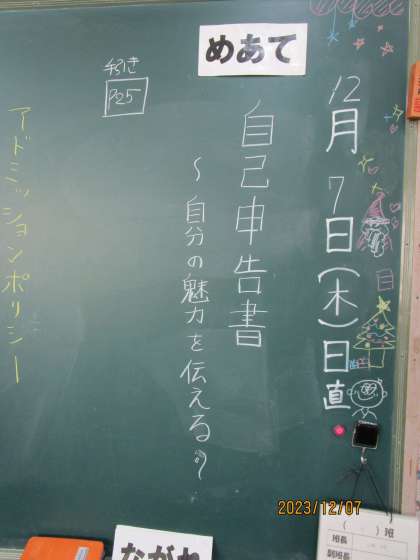 12月7日(木)日直
めあて
自己申告書
～自分の魅力を伝える～
手引き
P25
アドミッションポリシー
ながれ
(　)班
班長
副班長
2023/12/07